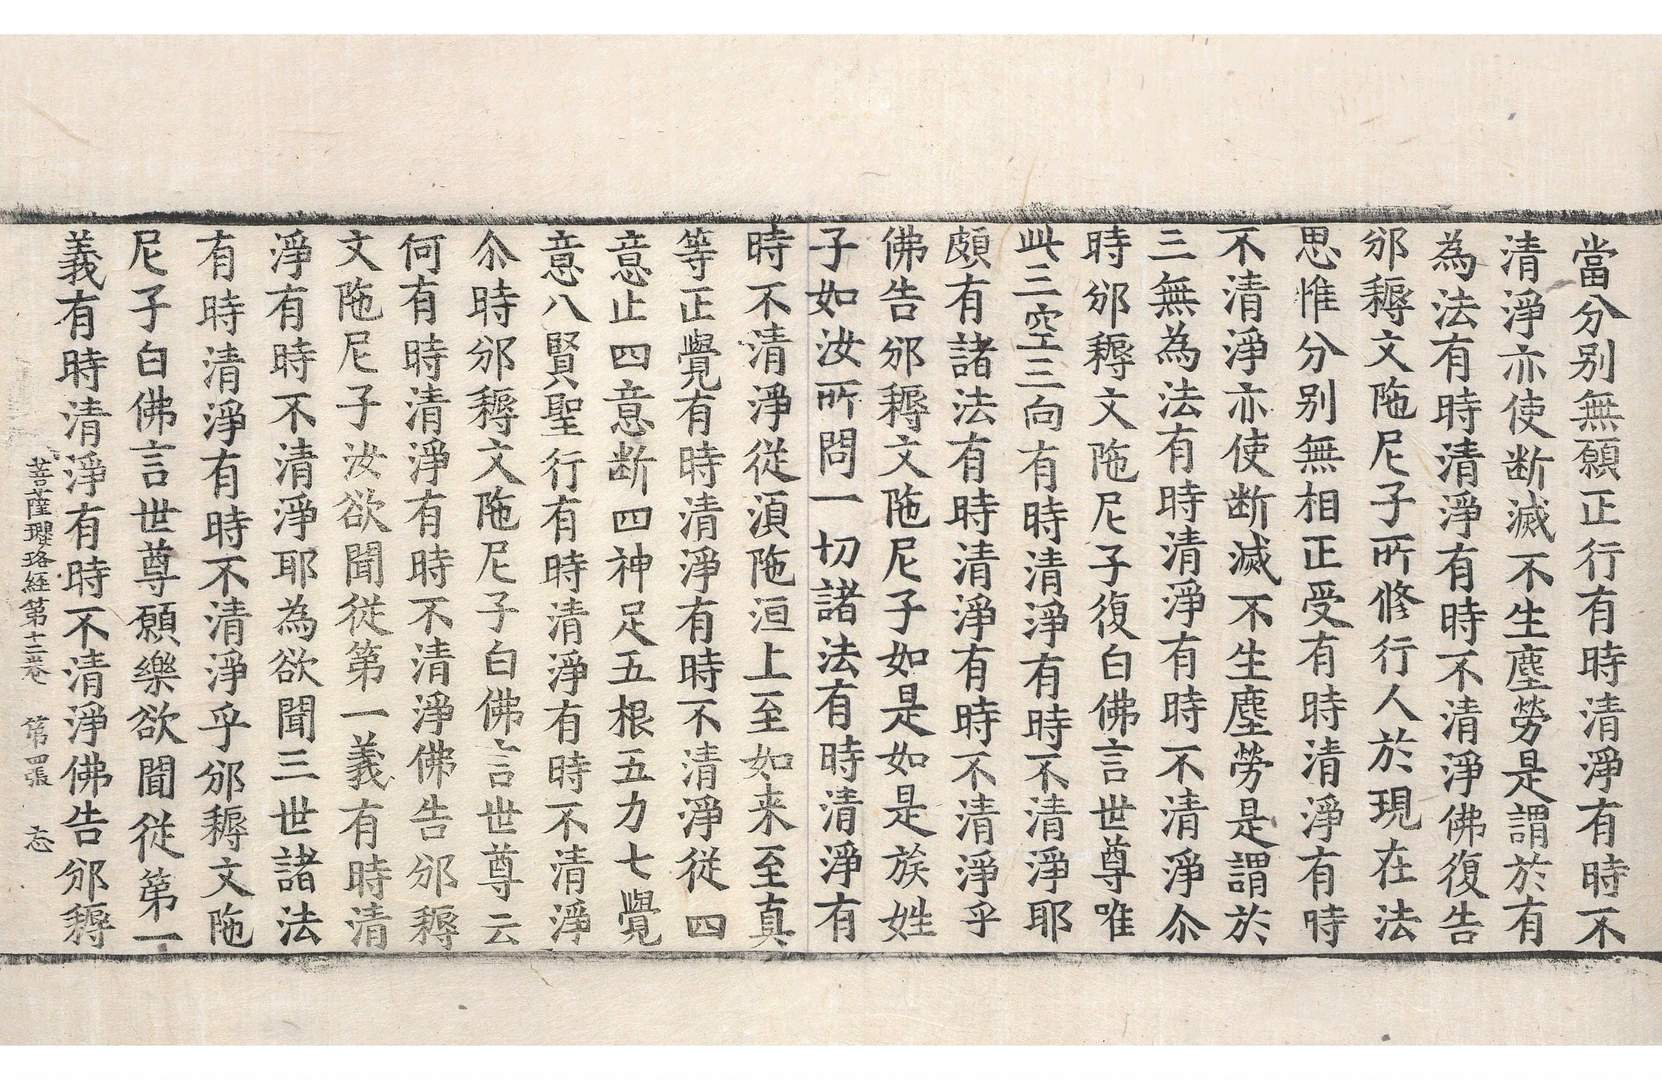 當分別無願正行有時清淨有時不
清淨亦使断滅不生塵勞是謂於有
為法有時清淨有時不清淨佛復告
邠耨文陁尼子所修行人於現在法
思惟分別無相正受有時清淨有時
不清淨亦使断滅不生塵勞是謂於
三無為法有時清淨有時不清淨尒
時邠耨文陁尼子復白佛言世尊唯
此三空三向有時清淨有時不清淨耶
頗有諸法有時清淨有時不清淨乎
佛告邠耨文陁尼子如是如是族姓
子如汝所問一切諸法有時清淨有
時不清淨從湏陁洹上至如来至真
等正覺有時清淨有時不清淨從四
意止四意断四神足五根五力七覺
意八賢聖行有時清淨有時不清淨
尒時邠耨文陁尼子白佛言世尊云
何有時清淨有時不清淨佛告邠耨
文陁尼子汝欲聞從第一義有時清
淨有時不清淨耶為欲聞三世諸法
有時清淨有時不清淨乎邠耨文陁
尼子白佛言世尊願樂欲聞從第一
義有時清淨有時不清淨佛告邠耨
菩薩瓔珞經第十二卷 第四張 忘